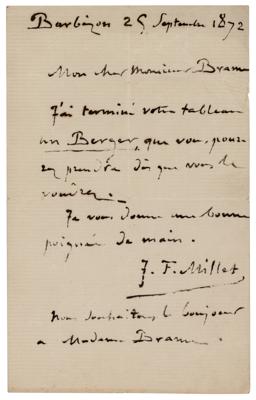 Barbizon 25 Septembre 1872
Mon cher Monsieur Brame
J'ai terminé votre tableau
un Berger, que vous pouv-
ez prendre dès que vous le
voudrez.
Je vous donne une bonne
poignée de main.
J. F. Millet
Nous souhaitons le bonjour
a Madame Brame.